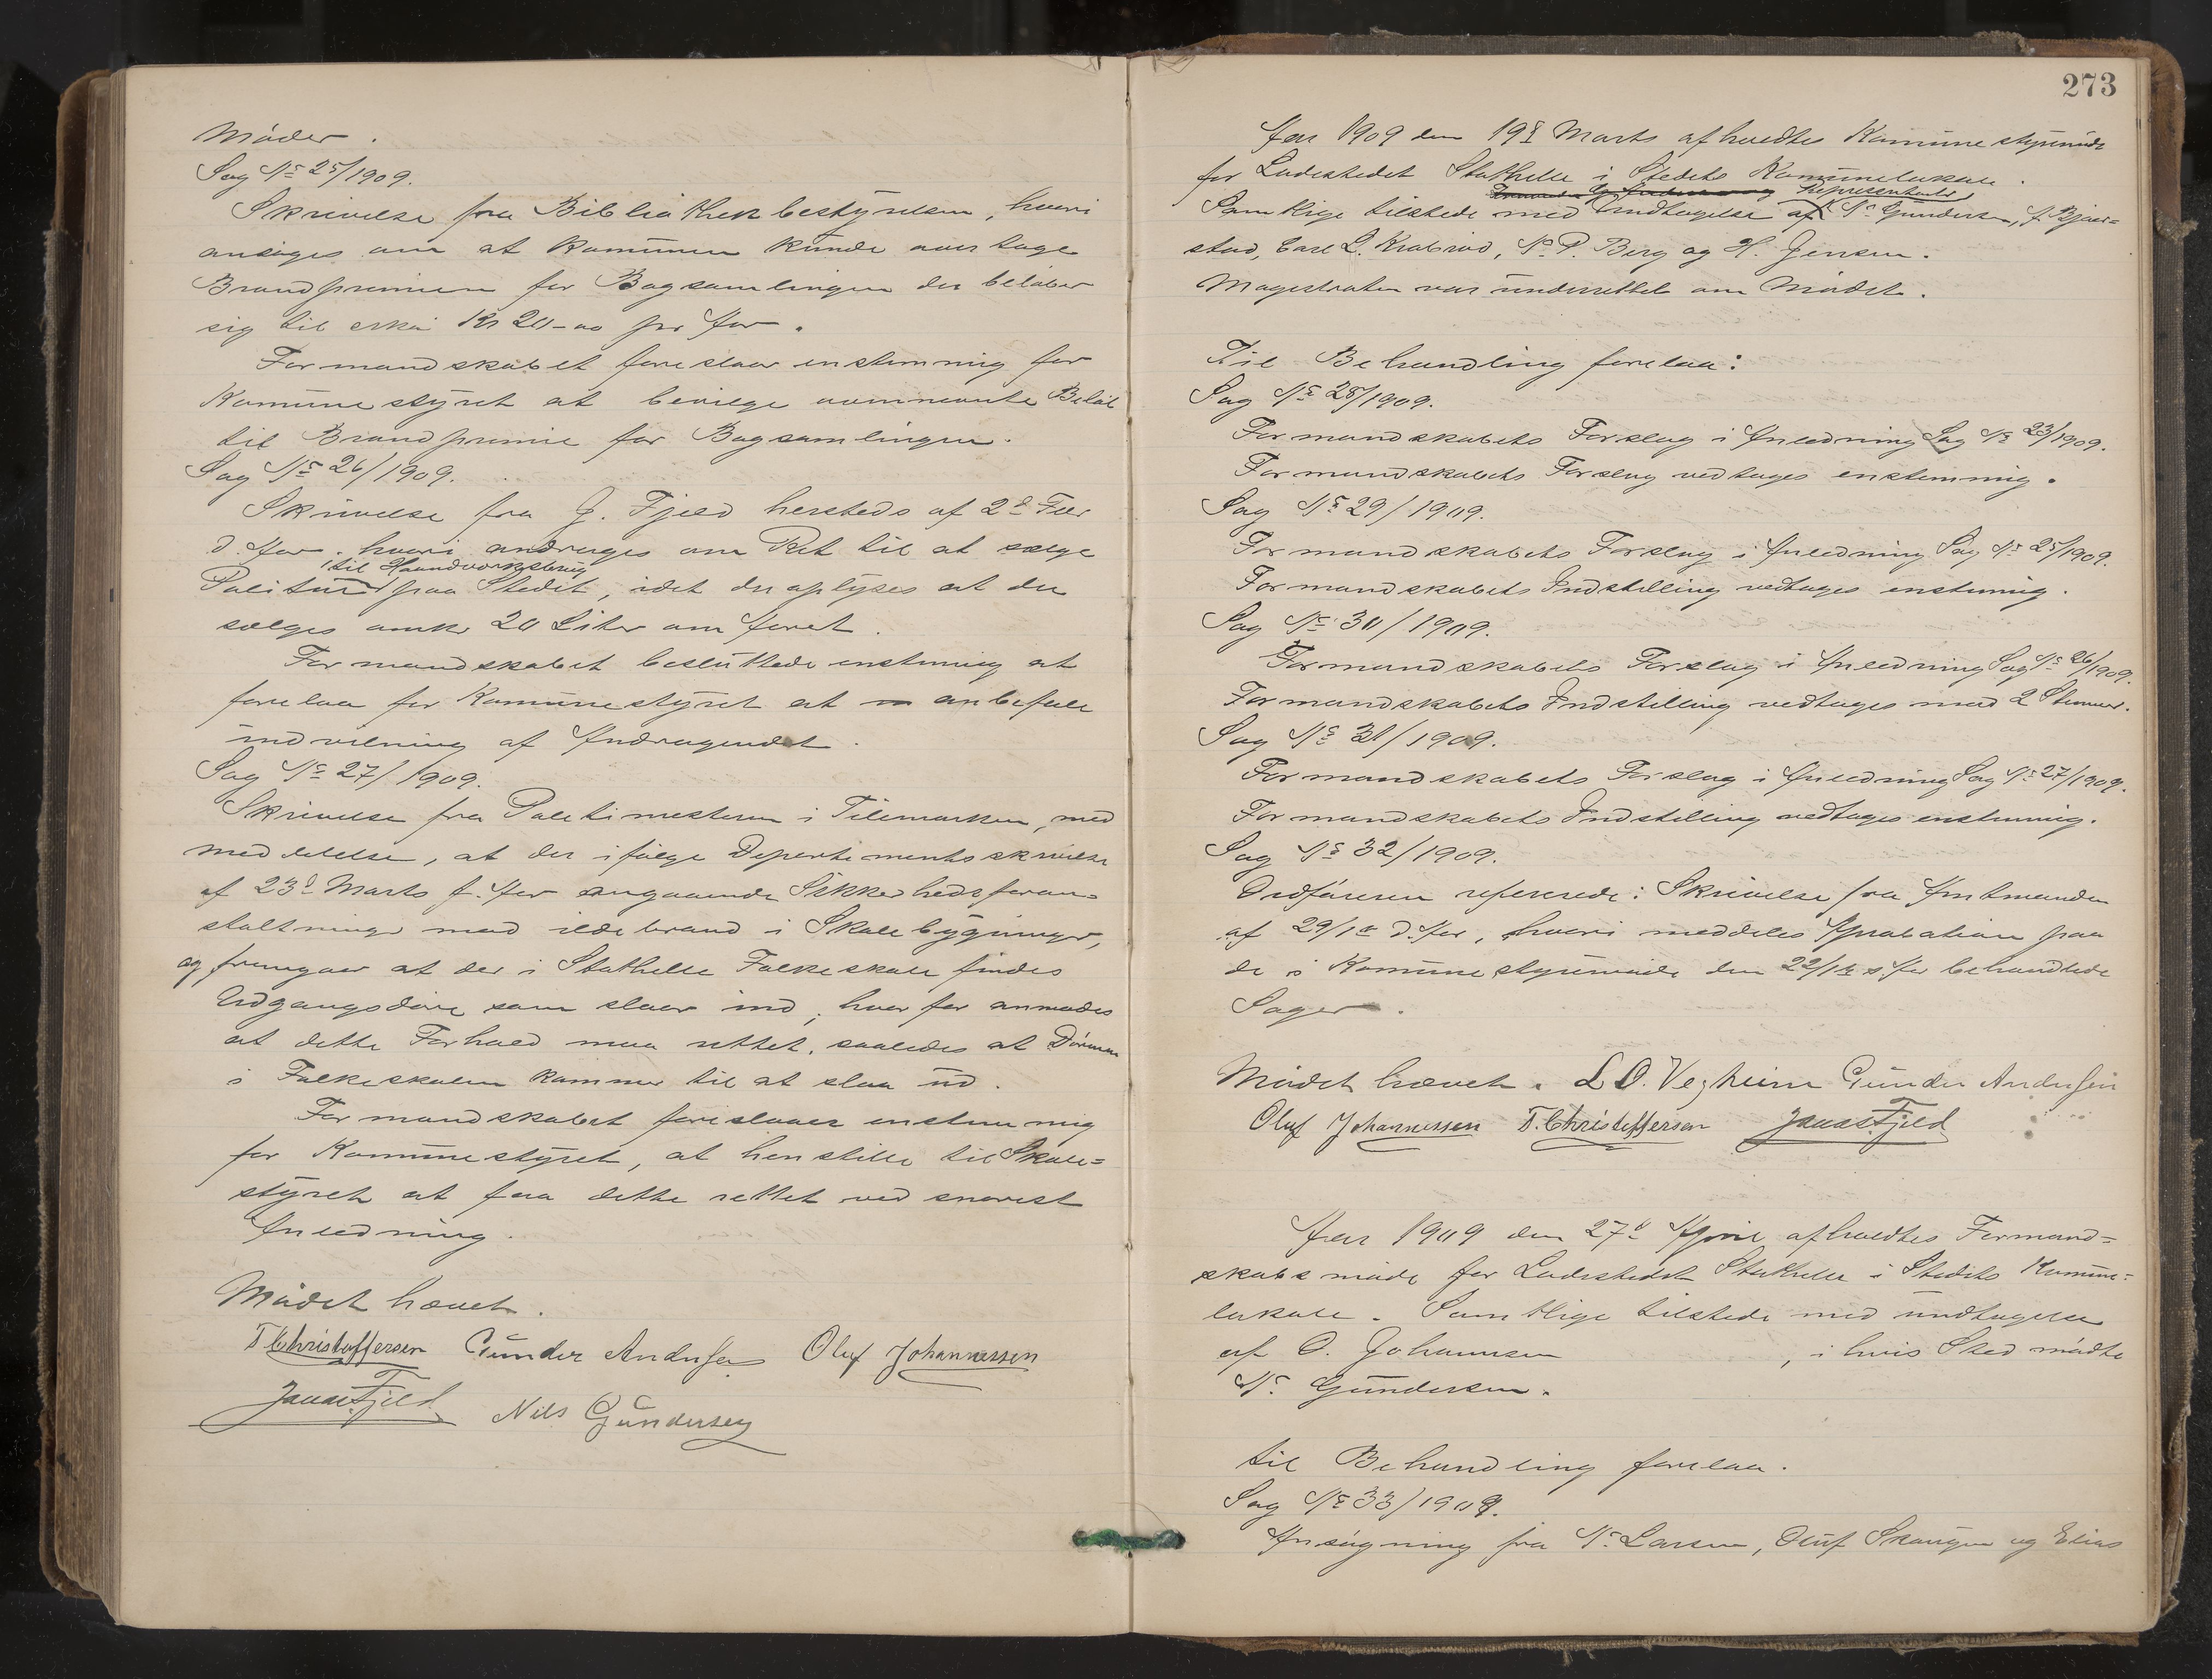 Møder.
Sag Nr 25/1909.
Skrivelse fra Bibliothekbestyrelsen, hvori
ansøges om at Kommunen kunde overtage
Brandpremien for Bogsamlingen der beløber
sig til cirka Kr 20-00 pr Aar.
Formandskabet foreslaar enstemmig for
Kommunestyret at bevilge ovennevnte Beløb
til Brandpremie for Bogsamlingen.
Sag Nr 26/1909.
Skrivelse fra J. Fjeld hersteds af 2d Febr
d. Aar, hvori andrages om Ret til at sælge
til Haandværksbrug
Politur paa Stedet, idet der oplyses at der
sælges omkr 20 Liter om Aaret.
Formandskabet besluttede enstemmig at
forelaa for Kommunestyret at anbefale
indvilning af Andragendet.
Sag Nr 27/1909.
Skrivelse fra Politimesteren i Tilemarken, med
meddelelse, at der ifølge Departementsskrivelse
af 23d Marts f. Aar angaaende Sikkerhedsforan-
staltninger mod ildebrand i Skolebygninger,
og fremgaar at der i Stathelle Folkeskole findes
Udgangsdøre som slaar ind, hvorfor anmodes
at dette Forhold maa rettet, saaledes at Dørene
i Folkeskolen kommer til at slaa ud.
Formandskabet foreslaaer enstemmig
for Kommunestyret, at henstille til Skole=
styret at faa dette rettet ved snarest
Anledning.
Mødet hævet.
T. Christoffersen Gunder Andersen Oluf Johannessen
Jonas Fjeld Nils Gundersen
273
Aar 1909 den 19d Marts afholdtes Kommunestyremøde
for Ladestedet Stathelle i Stedets Kommunelokale.
Representanter
Samtlige tilstede med Undtagelse af N. Gundersen, J. Bjær=
stad, Carl L. Krabrød, N. P. Berg og H. Jensen.
Magestraten var underrettet om Mødet.
Til Behandling forelaa:
Sag Nr 28/1909.
Formandskabets Forslag i Anledning Sag Nr 23/1909.
Formandskabets Forslag vedtages enstemmig.
Sag Nr 29/1909.
Formandskabets Forslag i Anledning Sag Nr 25/1909.
Formandskabets Indstilling vedtages enstemmig.
Sag Nr 30/1909.
Formandskabets Forslag i Anledning Sag Nr 26/1909.
Formandskabets Indstilling vedtages mod 2 Stemmer.
Sag Nr 31/1909.
Formandskabets Forslag i Anledning Sag Nr 27/1909.
Formandskabets Indstilling vedtages enstemmig.
Sag Nr 32/1909.
Ordføreren refererede: Skrivelse fra Amtmanden
af 29/1 d. Aar, hvori meddeles Aprobation paa
de i Kommunestyremøde den 22/12 f. Aar behandlede
Sager.
Mødet hævet. L O. Vegheim Gunder Andersen
Oluf Johannessen T. Christoffersen Jonas Fjeld
Aar 1909 den 27d April afholdtes Formand=
skabsmøde for Ladestedet Stathelle i Stedets Komune=
lokale. Samtlige tilstede med undtagelse
af O. Johannesen , i hvis Sted mødte
N. Gundersen.
til Behandling forelaa.
Sag Nr 33/1909.
Ansøgning fra N. Larsen, Oluf Skaugen og Elias